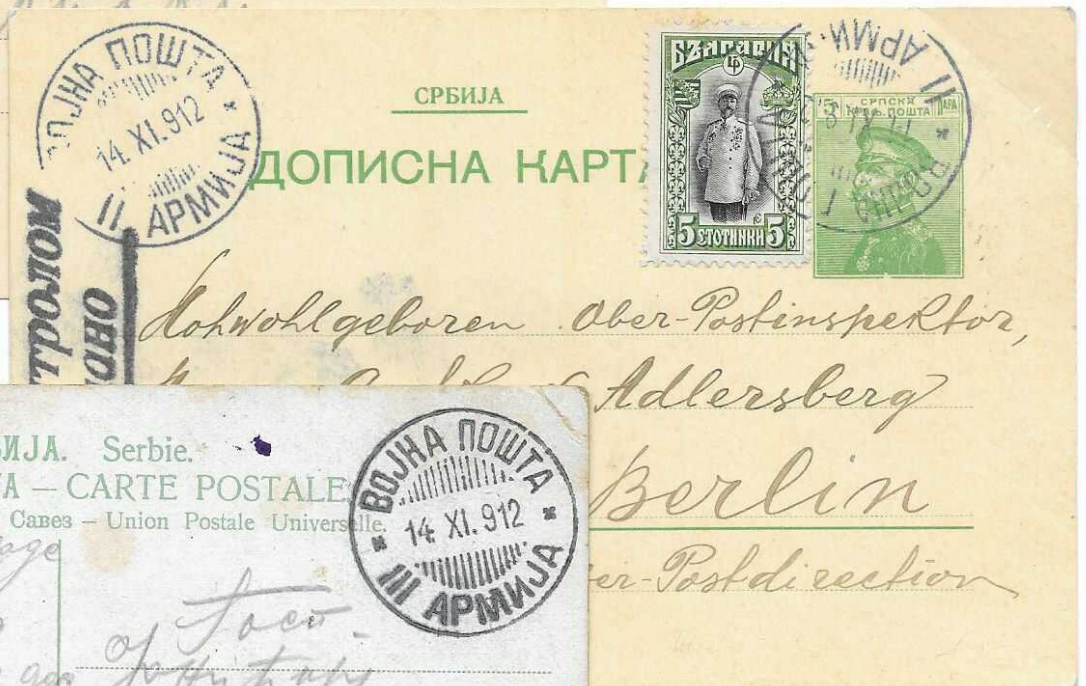 ВОЈНА ПОШТА
14. XI. 912
II АРМИЈА
СРБИЈА
ДОПИСНА КАРТ
БЪЛГАРИЯ
5 СТОТИНКИ 5
СРПСКА
КРАЉ. ПОШТА
5 ПАРА
ВОЈНА
II АРМИ
ТРОЛОМ
АНО
Hohwohlgeboren Ober-Postinspektor,
Adlersberg
Berlin
er-Postdirection
ИЈА. Serbie.
А — CARTE POSTALE
Савез – Union Postale Universelle.
ВОЈНА ПОШТА
14. XI. 912
III АРМИЈА